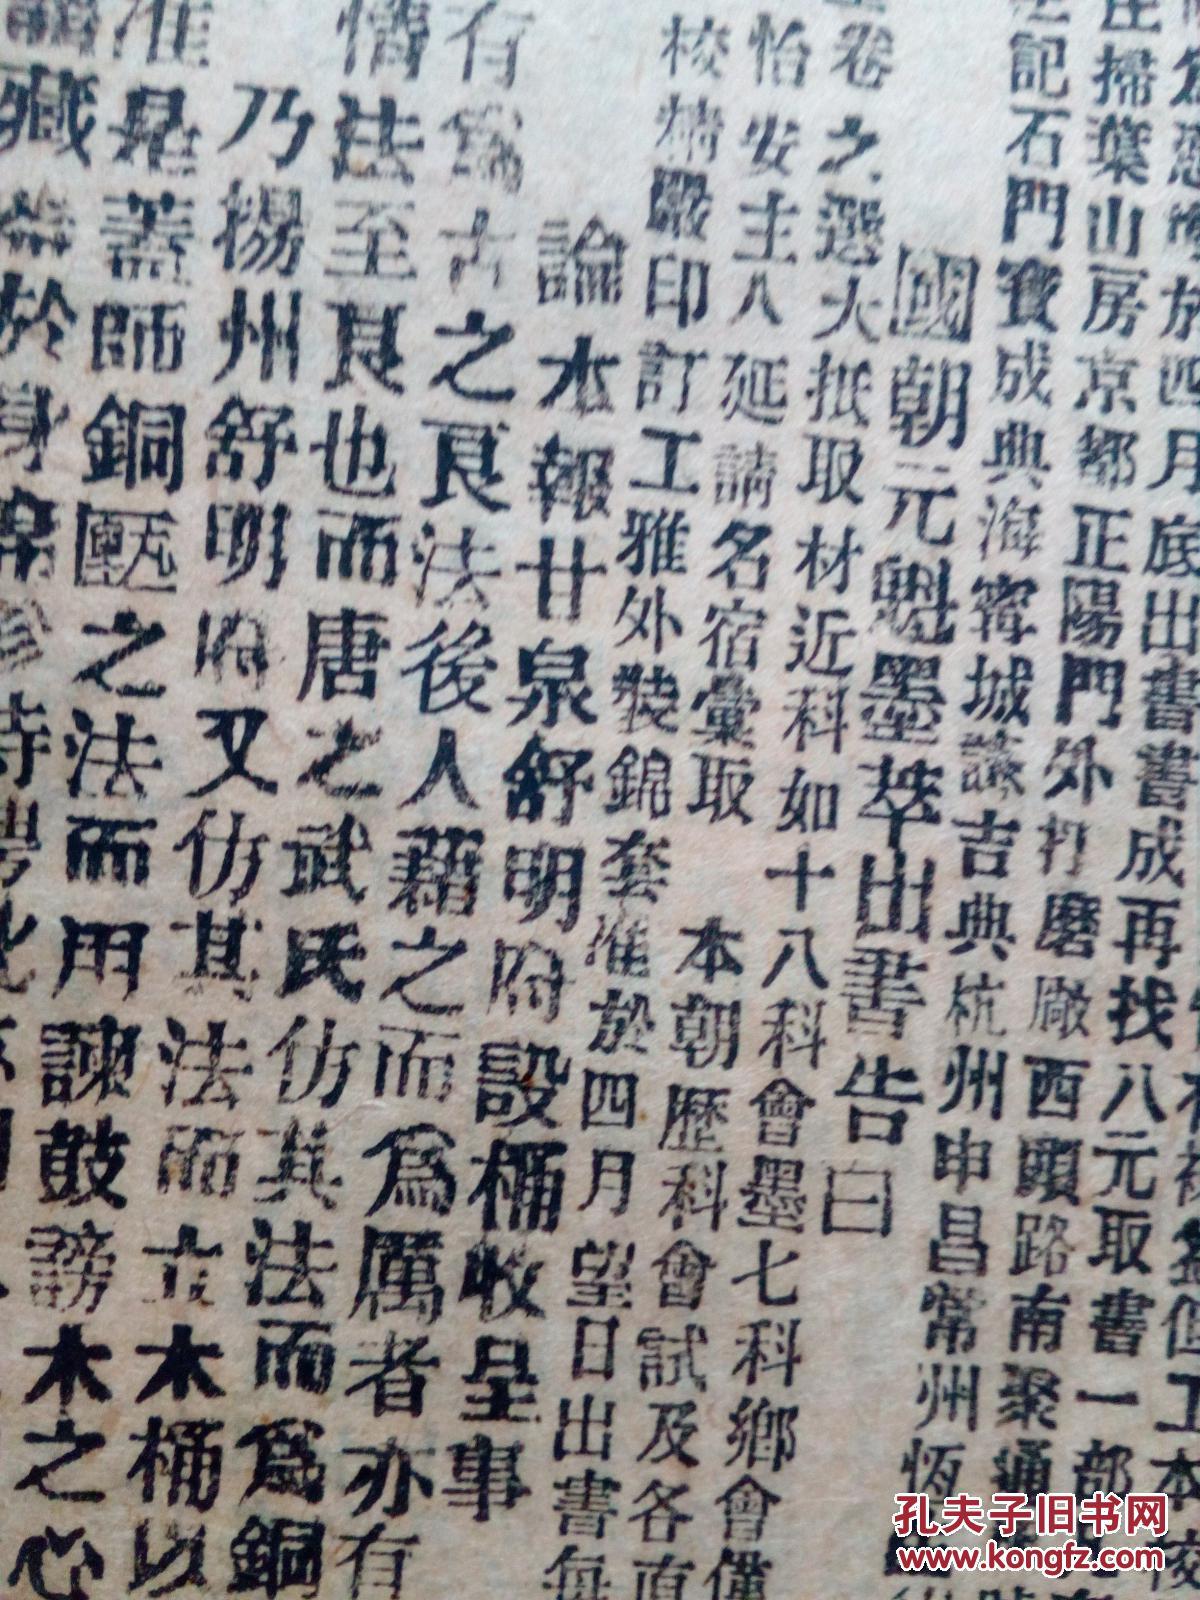 於四月底出書書成再找八元取書一部
庄掃葉山房京都正陽門外打磨廠西頭路南聚
記石門寶成典海甯城謙吉典杭州申昌常州恆
國朝元魁墨萃出書告白
卷之選大抵取材近科如十八科會墨七科鄉會僅
怡安主人延請名宿彙取 本朝歷科會試及各直
校精嚴印訂工雅外裝錦套准於四月望日出書每
論本報甘泉舒明府設桶收呈事
有爲古之良法後人藉之而爲厲者亦有
法至良也而唐之武氏仿其法而爲銅
乃揚州舒明府又仿其法而立木桶以
准是蓋師銅匭之法而用諫鼓謗木之心
藏於身
孔夫子旧书网
www.kongfz.com